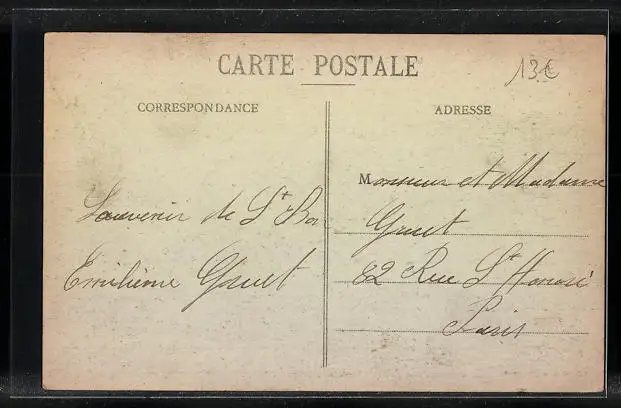 CARTE POSTALE
13€
CORRESPONDANCE
ADRESSE
Souvenir de St Bon
Emilienne Gruet
Monsieur et Madame
Gruet
82 Rue St Honoré
Paris